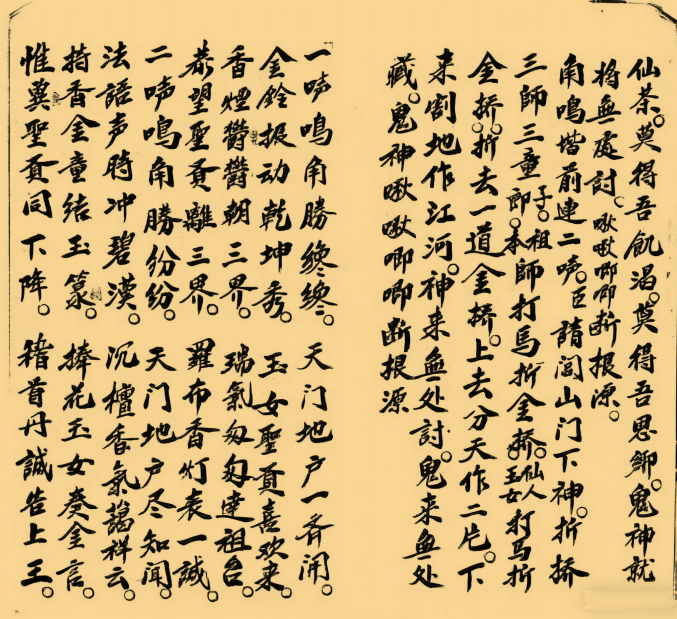 仙茶。莫得吾飢渴。莫得吾思鄉。鬼神就
将無處討。啾啾唧唧断根源。
角鳴揩前連二声。臣請閭山门下神。折挢
三師三童郎子。本祖師打馬折金挢。仙人玉女打马折
金挢。折去一道金挢。上去分天作二片。下
来割地作江河。神来無处討。鬼来無处
藏。鬼神啾啾唧唧断根源
一声鳴角勝纔纔。天门地户一齐開。
金鈴振动乾坤秀。玉女聖賢喜欢来。
香煙欝欝朝三界。瑞氣匆匆達祖台。
恭望聖賢離三界。羅布香灯表一誠。
二声鳴角勝纷纷。天门地户尽知聞。
法語声時冲碧漢。沉檀香氣藹祥云。
持香金童结玉篆。捧花玉女奏金言。
惟冀聖賢同下降。稽首丹誠告上王。